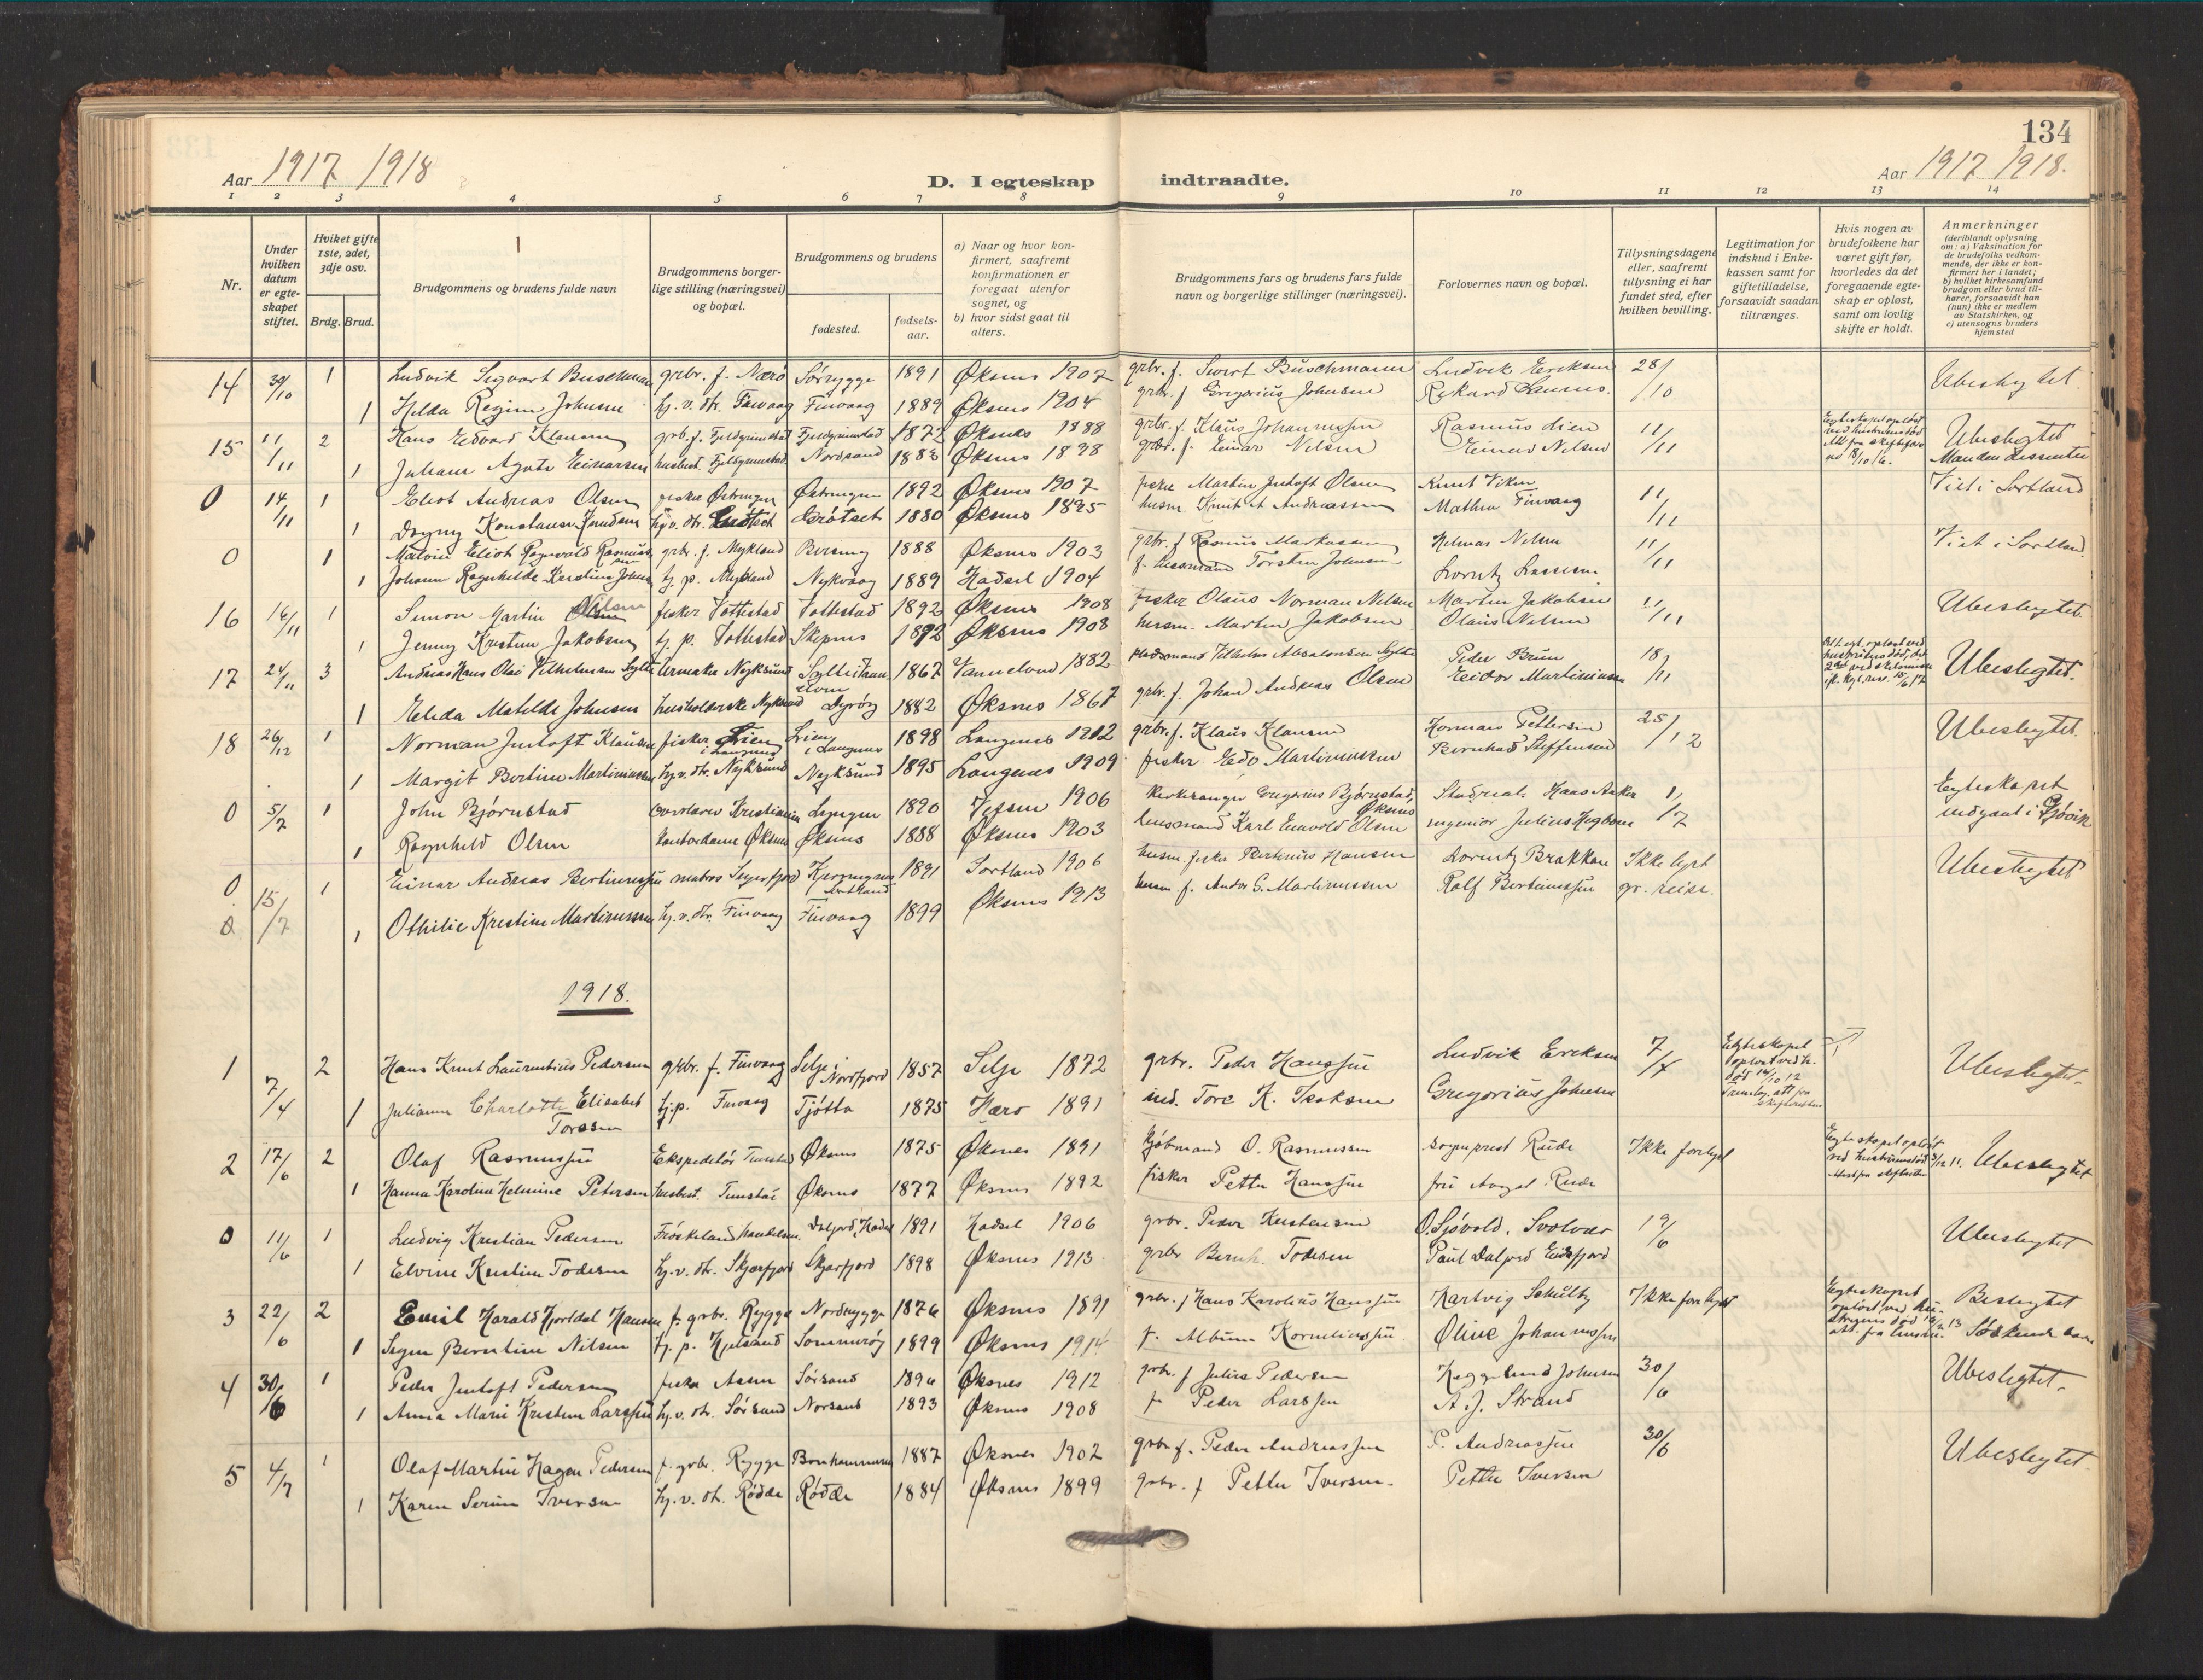 134
Aar 1917 1918
D. I egteskap indtraadte.
Aar 1917 1918.
1 2 3 4 5 6 7 8 9 10 11 12 13 14
Nr.
Under hvilken datum er egteskapet stiftet.
Hviket gifte 1ste, 2det, 3dje osv.
Brdg. Brud.
Brudgommens og brudens fulde navn
Brudgommens borgerlige stilling (næringsvei) og bopæl.
Brudgommens og brudens
fødested.
fødselsaar.
a) Naar og hvor konfirmert, saafremt konfirmationen er foregaat utenfor sognet, og
b) hvor sidst gaat til alters.
Brudgommens fars og brudens fars fulde navn og borgerlige stillinger (næringsvei).
Forlovernes navn og bopæl.
Tillysningsdagene eller, saafremt tillysning ei har fundet sted, efter hvilken bevilling.
Legitimation for indskud i Enkekassen samt for giftetilladelse, forsaavidt saadan tiltrænges.
Hvis nogen av brudefolkene har været gift før, hvorledes da det foregaaende egteskap er opløst, samt om lovlig skifte er holdt.
Anmerkninger (deriblandt oplysning om: a) Vaksination for de brudefolks vedkommende, der ikke er konfirmert her i landet; b) hvilket kirkesamfund brudgom eller brud tilhører, forsaavidt han (hun) ikke er medlem av Statskirken, og c) utensogns bruders hjemsted
14 30/10 1 Ludvik Sigvart Buschmann grbr. f. Nærø Sørrygge 1891 Øksnes 1907 grbr. f. Sivert Buschmann Ludvik Eriksen 28/10 Ubeslegtet
1 Hilda Regine Johnsen hj. v. dtr. Finvaag Finvaag 1889 Øksnes 1904 grbr. f Gregorius Johnsen Rikard
15 11/11 2 Hans Edvard Klausen grb. f. Fjeldgrimstad Fjeldgrimstad 1872 Øksnes 1888 grbr. f. Klaus Johannessen Rasmus Lien 11/11 Egteskapet opløst ved hustruens død Att fra skifteforv. av 18/10 16. Ubeslegtet Manden dissenter
1 Juliane Agate Einarsen husbest. Fjeldgrimstad Nordsand 1883 Øksnes 1898 grbr. f. Einar Nilsen Einar Nilsen
0 14/11 1 Eliot Andreas Olsen fisker Østringen Østringen 1892 Øksnes 1907 fisker Martin Justoft Olsen Knut Viken 11/11 Viet i Sortland
1 Dagny Konstanse Knudsen hj. v. dtr. Grøtset Grøtset 1880 Øksnes 1895 husm. Knut A Andreassen Matheu Finvaag
0 1 Malvin Eliot Ragnvald Rasmussen grbr. f. Nykland 1888 Øksnes 1903 grbr. f Rasmus Markussen Helmer Nilsen 11/11 Viet i Sortland
1 Johanne Ragnhilde Kerstine Johnsen tj. p. Nykland Nykvaag 1889 Hadsel 1904 f. husmand Torsten Johnsen Lorentz Lassesen
16 16/11 1 Simon Martin Nilsen fisker Tottestad Tottestad 1892 Øksnes 1908 fisker Olaus Norman Nilsen Martin Jakobsen 11/11 Ubeslegtet
1 Jenny Kristine Jakobsen tj. p. Tottestad Skepnes 1892 Øksnes 1908 husm. Martin Jakobsen Olaus Nilsen
17 24/11 3 Andreas Hans Olai Vilhelmsen Sylte Urmaker Nyksund 1867 Vannelven 1882 pladsmand Vilhelm Absalonsen Sylte Peder Bruun 18/11 Ubeslegtet.
1 Elida Matilde Johnsen husholderske Nyksund Dyrøy 1882 Øksnes 1867 grbr. f. Johan Andreas Olsen Eidor Martiniussen
18 26/12 1 Norman Justoft Klausen fisker Lien i Langenes Lien i Langenes 1898 Langenes 1912 grbr. f. Klaus Klausen Herman Pettersen 25/12 Ubeslegtet.
1 Margit Bertine Martiniussen hj. v. dtr. Nyksund Nyksund 1895 Langenes 1909 fisker Edo Martiniussen Bernhard Steffensen
0 5/7 1 John Bjørnstad overlærer Kristiania Lyngen 1890 Vefsen 1906 kirkesanger Gregorius Bjørnstad, Øksnes Studrats Hans Anker 1/7 Egteskapet indgaat i Gjøvik
1 Ragnhild Olsen kontordame Øksnes Øksnes 1888 Øksnes 1903 lensmand Karl Enevold Olsen ingeniør Julius Høgbom
0 15/7 1 Einar Andreas Bertinussen matros Sigerfjord 1891 Sortland 1906 husm. fisker Bertinus Hansen Lorentz Brakkan Ikke lyst gr. reise. Ubeslegtet
0 1 Othilie Kristine Martinussen hj. v. dtr. Finvaag Finvaag 1899 Øksnes 1913 husm. f. Anders G. Martinussen Rolf Bertinussen
1918.
1 7/4 2 Hans Knut Laurentius Pedersen grbr. f. Finvaag Selje i Nordfjord 1857 Selje 1872 grbr. Peder Hanssen Ludvik Eriksen 7/4 Egteskapet opløst ved h. død 14/10 12 Ubeslegtet.
1 Julianne Charlotte Elisabet Toressen tj. p. Finvaag Tjøtta 1875 Nærø 1891 ind. Tore K. Isaksen Gregorius Johnsen
2 17/6 2 Olaf Rasmussen Ekspeditør Tunstad Øksnes 1875 Øksnes 1891 kjøbmand O. Rasmussen sogneprest Rude Ikke forlyst Egteskapet opløst ved hustruens død 3/12 11. Attest fra skifteretten Ubeslegtet
1 Hanna Karoline Helmine Petersen husbest. Tunstad Øksnes 1877 Øksnes 1892 fisker Petter Hanssen fru Rude
0 11/6 1 Ludvig Kristian Pedersen Frøskeland handelsm. Daljord, Hadsel 1891 Hadsel 1906 grbr. Peder Kristensen O. Sjøvold. Svolvær 19/6 Ubeslegtet
1 Elvine Kristine Todesen hj. v. dtr. Skjærfjord Skjærfjord 1898 Øksnes 1913 grbr Bernh. Todesen Paul Daljord Eidsfjord
3 22/6 2 Emil Harald Hjorldal Hansen f. grbr. Rygge Nordrygge 1876 Øksnes 1891 grbr. f Hans Karolius Hanssen Hartvig Schultz Ikke forlyst Egteskapet opløst ved hustruens død 13 att. fra lensm. Beslegtet Søskendebarn
1 Signe Berntine Nilsen tj. p. Hjelsand Sommerøy 1899 Øksnes 1914 f. Albium Korneliussen Oline Johannessen
4 30/6 1 Peder Justoft Pedersen fisker Aasen Sørsand 1896 Øksnes 1912 grbr. f Julius Pedersen Heggelund Johnsen 30/6 Ubeslegtet.
1 Anna Marie Kristine Larssen hj. v. dtr. Sørsand Norsand 1893 Øksnes 1908 f Peder Larssen A. J. Strand
5 4/7 1 Olaf Martin Hagen Pedersen f. grbr. Rygge 1887 Øksnes 1902 grbr f. Peder Andreassen P. Andreassen 30/6 Ubeslegtet.
1 Karen Serine Iversen hj. v. dt. Rødde Rødde 1884 Øksnes 1899 grbr. f Petter Iversen. Petter Iversen